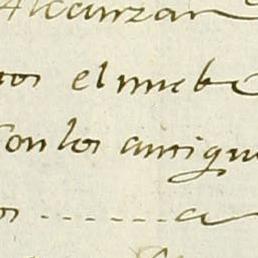 Alcanzan
nos el nueb
Con los antigu
os ........ a